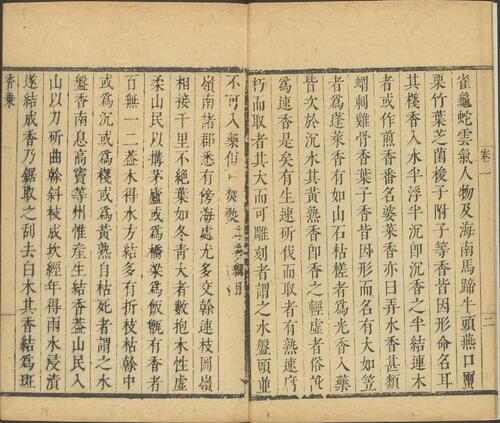 卷一
二
雀龜蛇雲氣人物及海南馬蹄牛頭燕口繭
栗竹葉芝菌梭子附子等香皆因形命名耳
其棧香入水半浮半沉卽沉香之半結連木
者或作煎香番名婆菜香亦曰弄水香甚類
蝟刺雞骨香葉子香皆因形而名有大如笠
者爲蓬萊香有如山石枯槎者爲光香入藥
皆次於沉水其黃熟香卽香之輕虛者俗訛
爲速香是矣有生速斫伐而取者有熟速腐
朽而取者其大而可雕刻者謂之水盤頭並
不可入藥但焚爇
嶺南諸郡悉有傍海處尤多交幹連枝岡嶺
相接千里不絕葉如冬青大者數抱木性虛
柔山民以搆茅廬或爲橋梁爲飯甑有香者
百無一二葢木得水方結多有折枝枯幹中
或爲沉或爲棧或爲黃熟自枯死者謂之水
盤香南息高竇等州惟産生結香葢山民入
山以刀斫曲幹斜枝成坎經年得雨水浸漬
遂結成香乃鋸取之刮去白木其香結爲斑
香乘